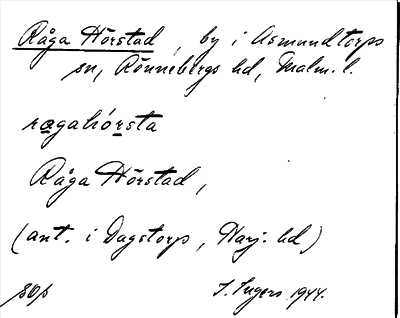 Råga Hörstad, by i Asmundtorps
sn, Rönnebergs hd, Malm. l.
rågahórsta
Råga Hörstad,
(ant. i Dagstorp, Harj. hd)
sop
I. Ingers 1944.